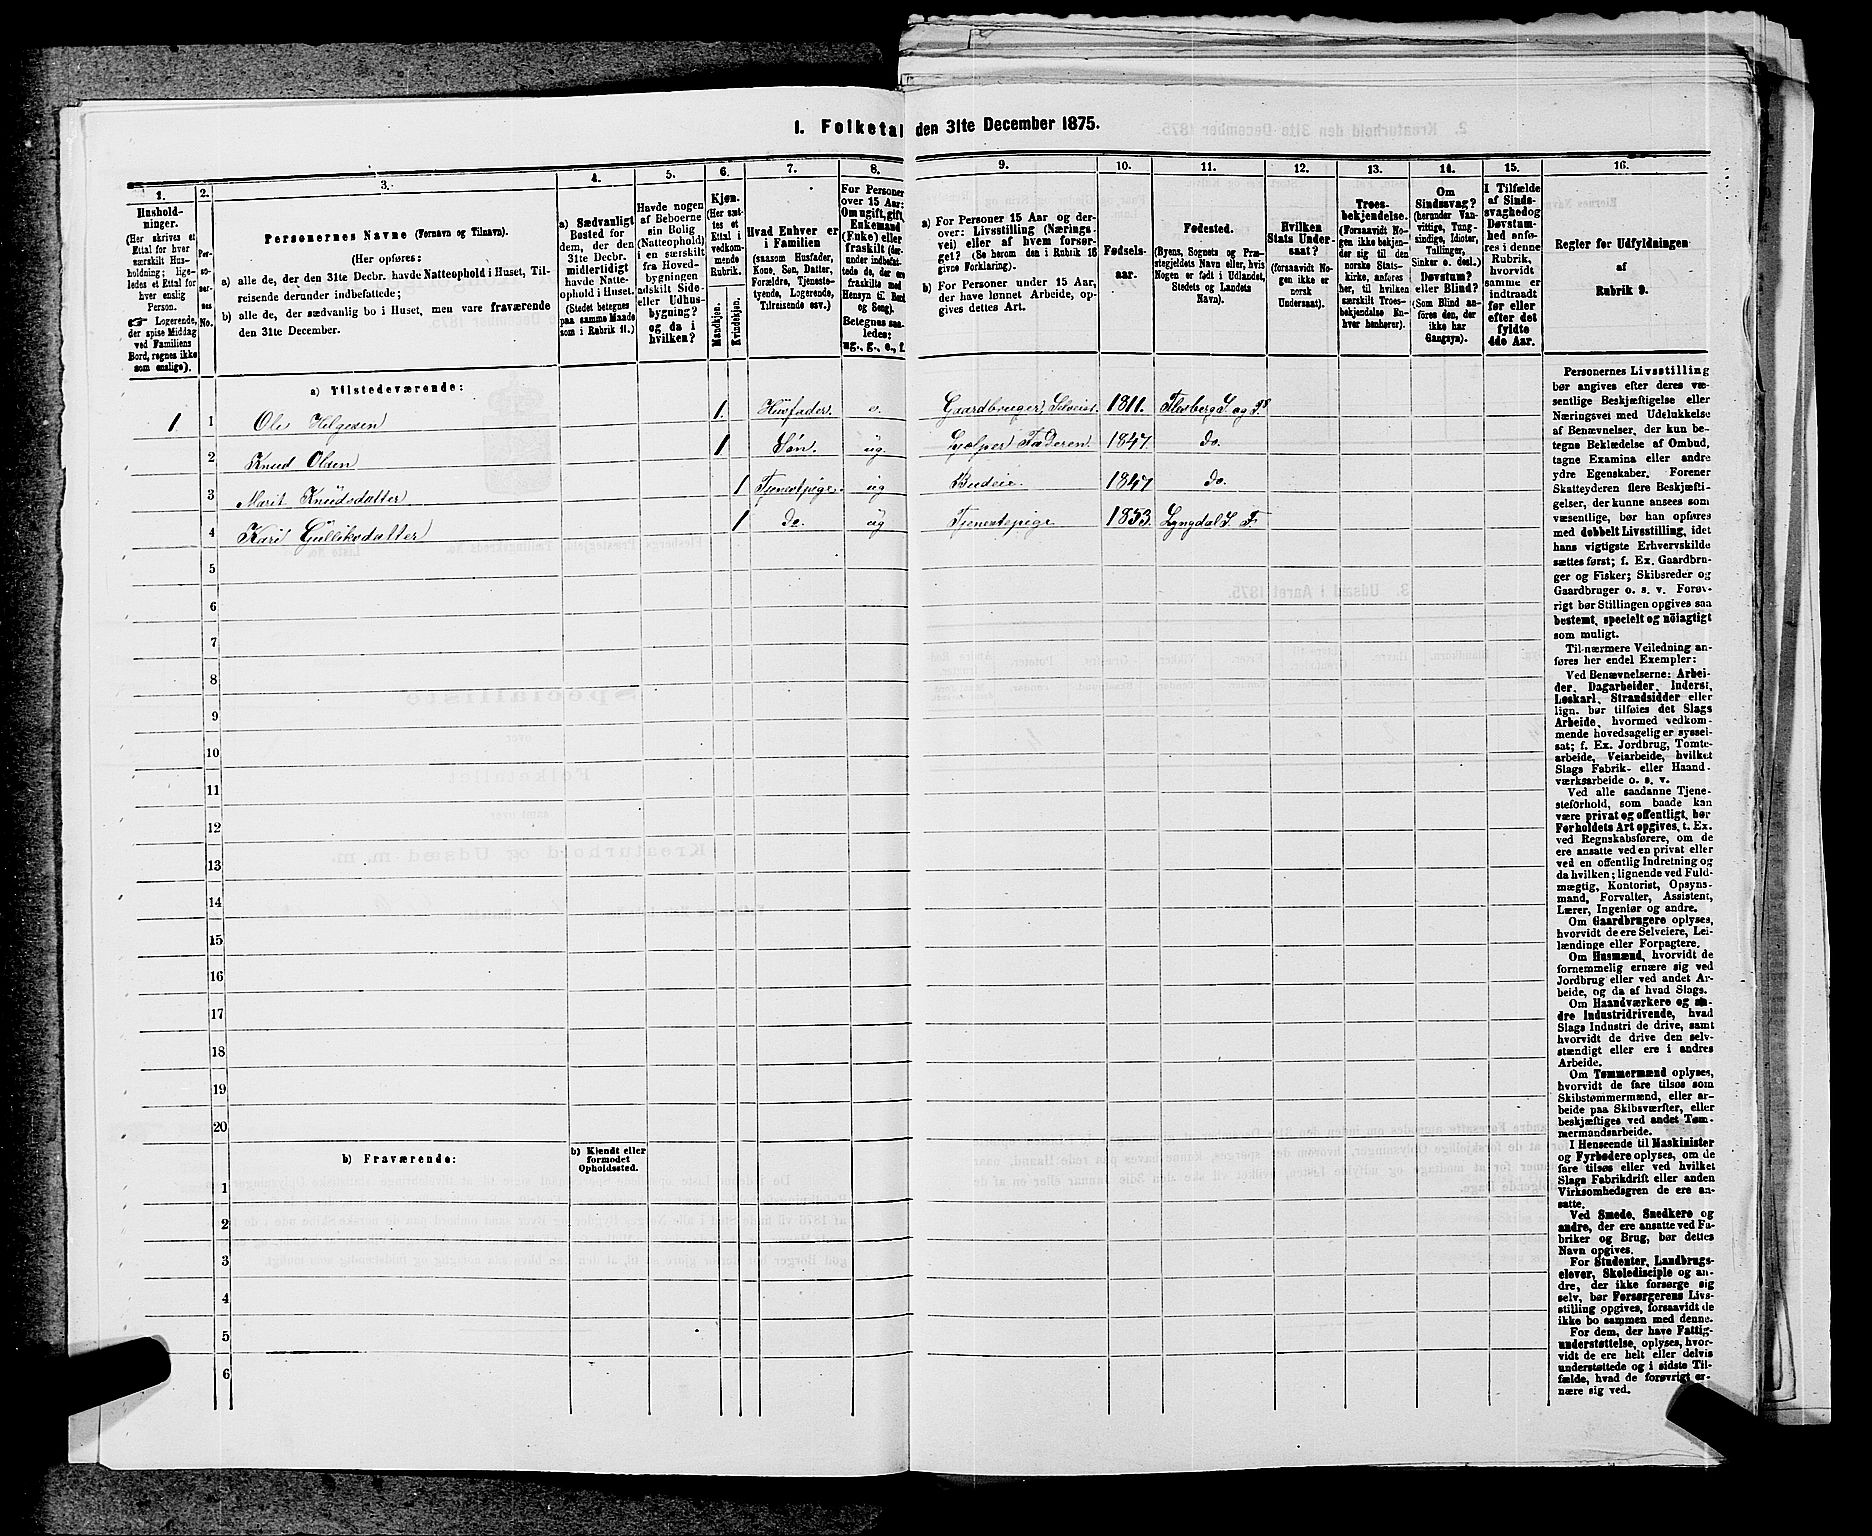 1. Folketal den 31te December 1875.
1.
Hushold-
ninger.
(Her skrives et
Ettal for hver
særskilt Hus-
holdning; lige-
ledes et Ettal for
hver enslig
Person.
☞ Logerende,
der spise Middag
ved Familiens
Bord, regnes ikke
som enslige).
2.
Per-
so-
ner-
nes
No.
3.
Personernes Navne (Fornavn og Tilnavn).
(Her opføres:
a) alle de, der den 31te Decbr. havde Natteophold i Huset, Til-
reisende derunder indbefattede;
b) alle de, der sædvanlig bo i Huset, men vare fraværende
den 31te December.
4.
a) Sædvanligt
Bosted for
dem, der den
31te Decbr.
midlertidigt
havde Natte-
ophold i Huset.
(Stedet betegnes
paa samme Maade
som i Rubrik 11.)
5.
Havde nogen
af Beboerne
sin Bolig
(Natteophold)
i en særskilt
fra Hoved-
bygningen
adskilt Side-
eller Udhus-
bygning?
og da i
hvilken?
6.
Kjøn.
(Her sæt-
tes et
Ettal i
vedkom-
mende
Rubrik.
Mandkjøn.
Kvindekjøn.
7.
Hvad Enhver er
i Familien
(saasom Husfader,
Kone, Søn, Datter,
Forældre, Tjeneste-
tyende, Logerende,
Tilreisende osv.)
8.
For Personer
over 15 Aar:
Om ugift, gift,
Enkemand
(Enke) eller
fraskilt (der-
under indbefat-
tede de, der ere
fraskilte med
Hensyn til Bord
og Seng).
Betegnes saa-
ledes:
ug., g., e., f.
9.
a) For Personer 15 Aar og der-
over: Livsstilling (Nærings-
vei) eller af hvem forsør-
get? (Se herom den i Rubrik 16
givne Forklaring).
b) For Personer under 15 Aar,
der have lønnet Arbeide, op-
gives dettes Art.
10.
Fødsels-
aar.
11.
Fødested.
(Byens, Sognets og Præ-
stegjeldets Navn eller, hvis
Nogen er født i Udlandet,
Stedets og Landets
Navn).
12.
Hvilken
Stats Under-
saat?
(forsaavidt No-
gen ikke er
norsk
Undersaat).
13.
Troes-
bekjendelse.
(Forsaavidt No-
gen ikke bekjen-
der sig til den
norske Stats-
kirke, anføres
her, til hvilken
særskilt Troes-
bekjendelse En-
hver henhører).
14.
Om
Sindssvag?
(herunder Van-
vittige, Tung-
sindige, Idioter,
Tullinger,
Sinker o. desl.)
Døvstum?
eller Blind?
(Som Blind an-
føres den, der
ikke har
Gangsyn).
15.
I Tilfælde
af Sinds-
svaghed og
Døvstum-
hed anfø-
res i denne
Rubrik,
hvorvidt
samme er
indtraadt
før eller
efter det
fyldte
4de Aar.
16.
Regler for Udfyldningen
af
Rubrik 9.
a) Tilstedeværende:
1 1 Ole Helgesen 1. Husfader. e. Gaardbruger, Selveier. 1811. Flesberg S. og P.
2 Knud Olsen 1 Søn. ug. Hjelper Faderen 1847. do.
3 Marit Knudsdatter 1 Tjenestpige. ug Budeie. 1847 do.
4 Kari Gulliksdatter 1 do. ug Tjenestepige 1853. Lyngdal S. F.
5
6
7
8
9
10
11
12
13
14
15
16
17
18
19
20
b) Fraværende:
b) Kjendt eller
formodet
Opholdssted.
1
2
3
4
5
6
Personernes Livsstilling
bør angives efter deres væ-
sentlige Beskjæftigelse eller
Næringsvei med Udelukkelse
af Benævnelser, der kun be-
tegne Beklædelse af Ombud,
tagne Examina eller andre
ydre Egenskaber. Forener
Skatteyderen flere Beskjæfti-
gelser, der kunne ansees som
væsentlige, bør han opføres
med dobbelt Livsstilling, idet
hans vigtigste Erhvervskilde
sættes først; f. Ex. Gaardbru-
ger og Fisker; Skibsreder og
Gaardbruger o. s. v. Forøv-
rigt bør Stillingen opgives saa
bestemt, specielt og nöiagtigt
som muligt.
Til nærmere Veiledning an-
føres her endel Exempler:
Ved Benævnelserne: Arbei-
der, Dagarbeider, Inderst,
Løskarl, Strandsidder eller
lign. bør tilføies det Slags
Arbeide, hvormed vedkom-
mende hovedsagelig er syssel-
sat; f. Ex. Jordbrug, Tomte-
arbeide, Veiarbeide, hvilket
Slags Fabrik- eller Haand-
værksarbeide o. s. v.
Ved alle saadanne Tjene-
steforhold, som baade kan
være privat og offentligt, bør
Forholdets Art opgives, t. Ex.
ved Regnskabsførere, om de
ere ansatte ved en privat eller
ved en offentlig Indretning og
da hvilken; lignende ved Fuld-
mægtig, Kontorist, Opsyns-
mand, Forvalter, Assistent,
Lærer, Ingeniør og andre.
Om Gaardbrugere oplyses,
hvorvidt de ere Selveiere, Lei-
lændinge eller Forpagtere.
Om Husmænd, hvorvidt de
fornemmelig ernære sig ved
Jordbrug eller ved andet Ar-
beide, og da af hvad Slags.
Om Haandværkere og an-
dre Industridrivende, hvad
Slags Industri de drive, samt
hvorvidt de drive den selv-
stændigt eller ere i andres
Arbeide.
Om Tømmermænd oplyses,
hvorvidt de fare tilsøs som
Skibstømmermænd, eller ar-
beide paa Skibsværfter, eller
beskjæftiges ved andet Tøm-
mermandsarbeide.
I Henseende til Maskinister
og Fyrbødere oplyses, om de
fare tilsøs eller ved hvilket
Slags Fabrikdrift eller anden
Virksomhedsgren de ere an-
satte.
Ved Smede, Snedkere og
andre, der ere ansatte ved Fa-
briker og Brug, bør dettes
Navn opgives.
For Studenter, Landbrugs-
elever, Skoledisciple og an-
dre, der ikke forsørge sig
selv, bør Forsørgerens Livs-
stilling opgives, forsaavidt de
ikke bo sammen med denne.
For dem, der have Fattig-
understøttelse, oplyses, hvor-
vidt de ere helt eller delvis
understøttede og i sidste Til-
fælde, hvad de forøvrigt er-
nære sig ved.